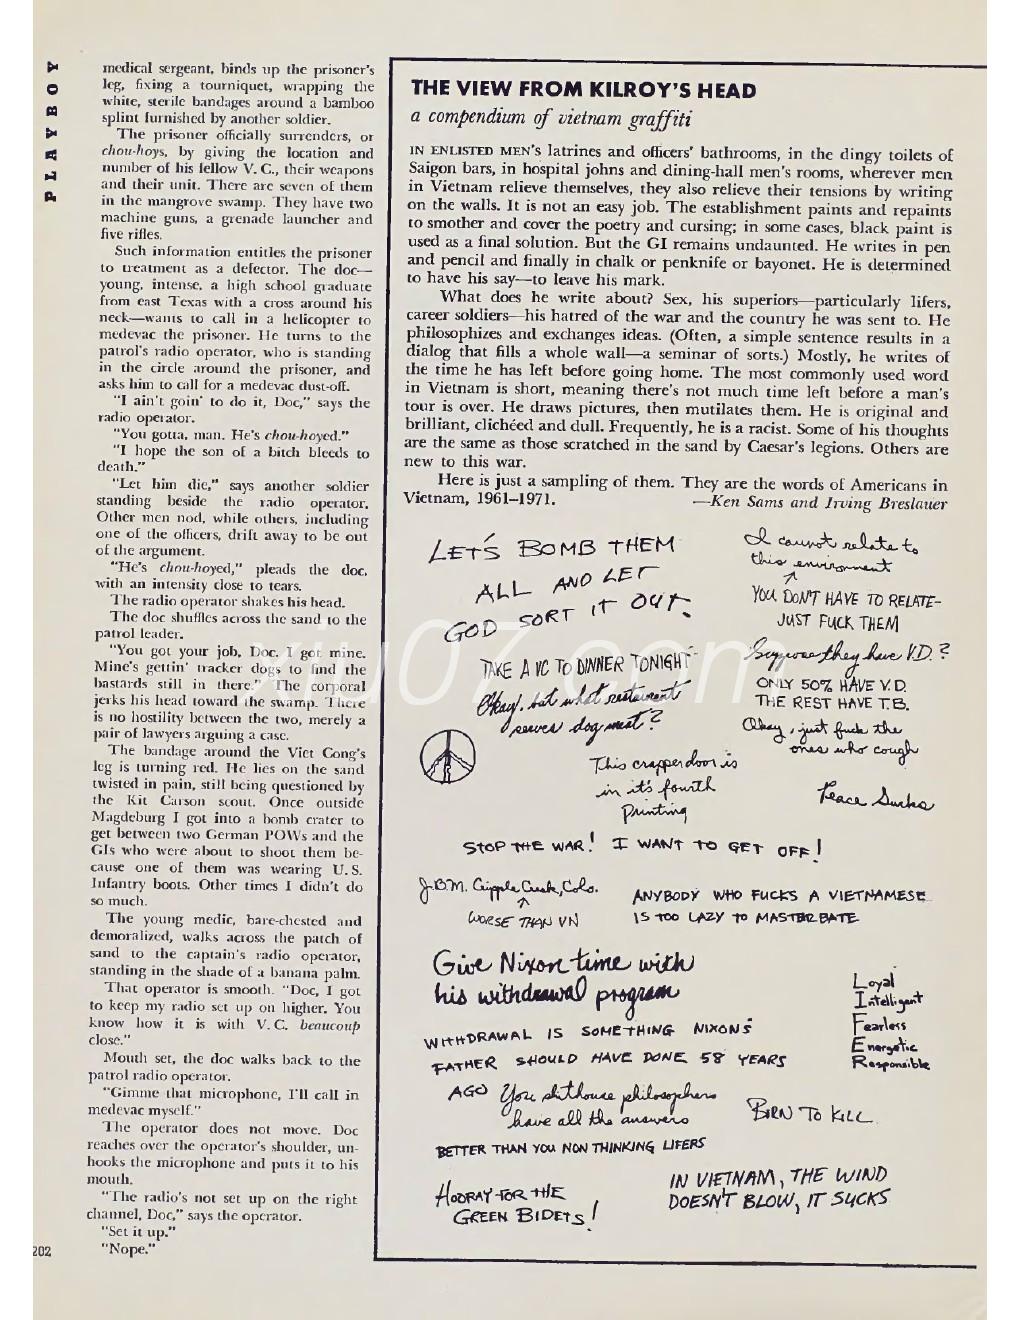 PLAYBOY
medical sergeant, binds up the prisoner's
leg, fixing a tourniquet, wrapping the
white, sterile bandages around a bamboo
splint furnished by another soldier.
The prisoner officially surrenders, or
chou-hoys, by giving the location and
number of his fellow V. C., their weapons
and their unit. There are seven of them
in the mangrove swamp. They have two
machine guns, a grenade launcher and
five rifles.
Such information entitles the prisoner
to treatment as a defector. The doc—
young, intense, a high school graduate
from east Texas with a cross around his
neck—wants to call in a helicopter to
medevac the prisoner. He turns to the
patrol's radio operator, who is standing
in the circle around the prisoner, and
asks him to call for a medevac dust-off.
"I ain't goin' to do it, Doc," says the
radio operator.
"You gotta, man. He's chou-hoyed."
"I hope the son of a bitch bleeds to
death."
"Let him die," says another soldier
standing beside the radio operator.
Other men nod, while others, including
one of the officers, drift away to be out
of the argument.
"He's chou-hoyed," pleads the doc,
with an intensity close to tears.
The radio operator shakes his head.
The doc shuffles across the sand to the
patrol leader.
"You got your job, Doc. I got mine.
Mine's gettin' tracker dogs to find the
bastards still in there." The corporal
jerks his head toward the swamp. There
is no hostility between the two, merely a
pair of lawyers arguing a case.
The bandage around the Viet Cong's
leg is turning red. He lies on the sand
twisted in pain, still being questioned by
the Kit Carson scout. Once outside
Magdeburg I got into a bomb crater to
get between two German POWs and the
GIs who were about to shoot them be-
cause one of them was wearing U. S.
Infantry boots. Other times I didn't do
so much.
The young medic, bare-chested and
demoralized, walks across the patch of
sand to the captain's radio operator,
standing in the shade of a banana palm.
That operator is smooth. "Doc, I got
to keep my radio set up on higher. You
know how it is with V. C. beaucoup
close."
Mouth set, the doc walks back to the
patrol radio operator.
"Gimme that microphone, I'll call in
medevac myself."
The operator does not move. Doc
reaches over the operator's shoulder, un-
hooks the microphone and puts it to his
mouth.
"The radio's not set up on the right
channel, Doc," says the operator.
"Set it up."
"Nope."
202
THE VIEW FROM KILROY'S HEAD
a compendium of vietnam graffiti
IN ENLISTED MEN'S latrines and officers' bathrooms, in the dingy toilets of
Saigon bars, in hospital johns and dining-hall men's rooms, wherever men
in Vietnam relieve themselves, they also relieve their tensions by writing
on the walls. It is not an easy job. The establishment paints and repaints
to smother and cover the poetry and cursing; in some cases, black paint is
used as a final solution. But the GI remains undaunted. He writes in pen
and pencil and finally in chalk or penknife or bayonet. He is determined
to have his say—to leave his mark.
What does he write about? Sex, his superiors—particularly lifers,
career soldiers—his hatred of the war and the country he was sent to. He
philosophizes and exchanges ideas. (Often, a simple sentence results in a
dialog that fills a whole wall—a seminar of sorts.) Mostly, he writes of
the time he has left before going home. The most commonly used word
in Vietnam is short, meaning there's not much time left before a man's
tour is over. He draws pictures, then mutilates them. He is original and
brilliant, clichéed and dull. Frequently, he is a racist. Some of his thoughts
are the same as those scratched in the sand by Caesar's legions. Others are
new to this war.
Here is just a sampling of them. They are the words of Americans in
Vietnam, 1961–1971. —Ken Sams and Irving Breslauer
LET'S BOMB THEM
ALL AND LET
GOD SORT IT OUT.
I cannot relate to
this environment
YOU DON'T HAVE TO RELATE-
JUST FUCK THEM
TAKE A VC TO DINNER TONIGHT
Okay, but what restaurant
serves dog meat?
Suppose they have V.D.?
ONLY 50% HAVE V.D.
THE REST HAVE T.B.
Okay, just fuck the
ones who cough
This crapper door is
in it's fourth
Printing
Peace Sucks
STOP THE WAR! I WANT TO GET OFF!
J.B.M. Cripple Creek, Colo.
WORSE THAN VN
ANYBODY WHO FUCKS A VIETNAMESE
IS TOO LAZY TO MASTERBATE
Give Nixon time with
his withdrawal program
WITHDRAWAL IS SOMETHING NIXONS
FATHER SHOULD HAVE DONE 58 YEARS
AGO
Loyal
Intelligent
Fearless
Energetic
Responsible
You shithouse philosophers
have all the answers
BORN TO KILL
BETTER THAN YOU NON THINKING LIFERS
HOORAY FOR THE
GREEN BIDETS!
IN VIETNAM, THE WIND
DOESN'T BLOW, IT SUCKS
xiu07.com